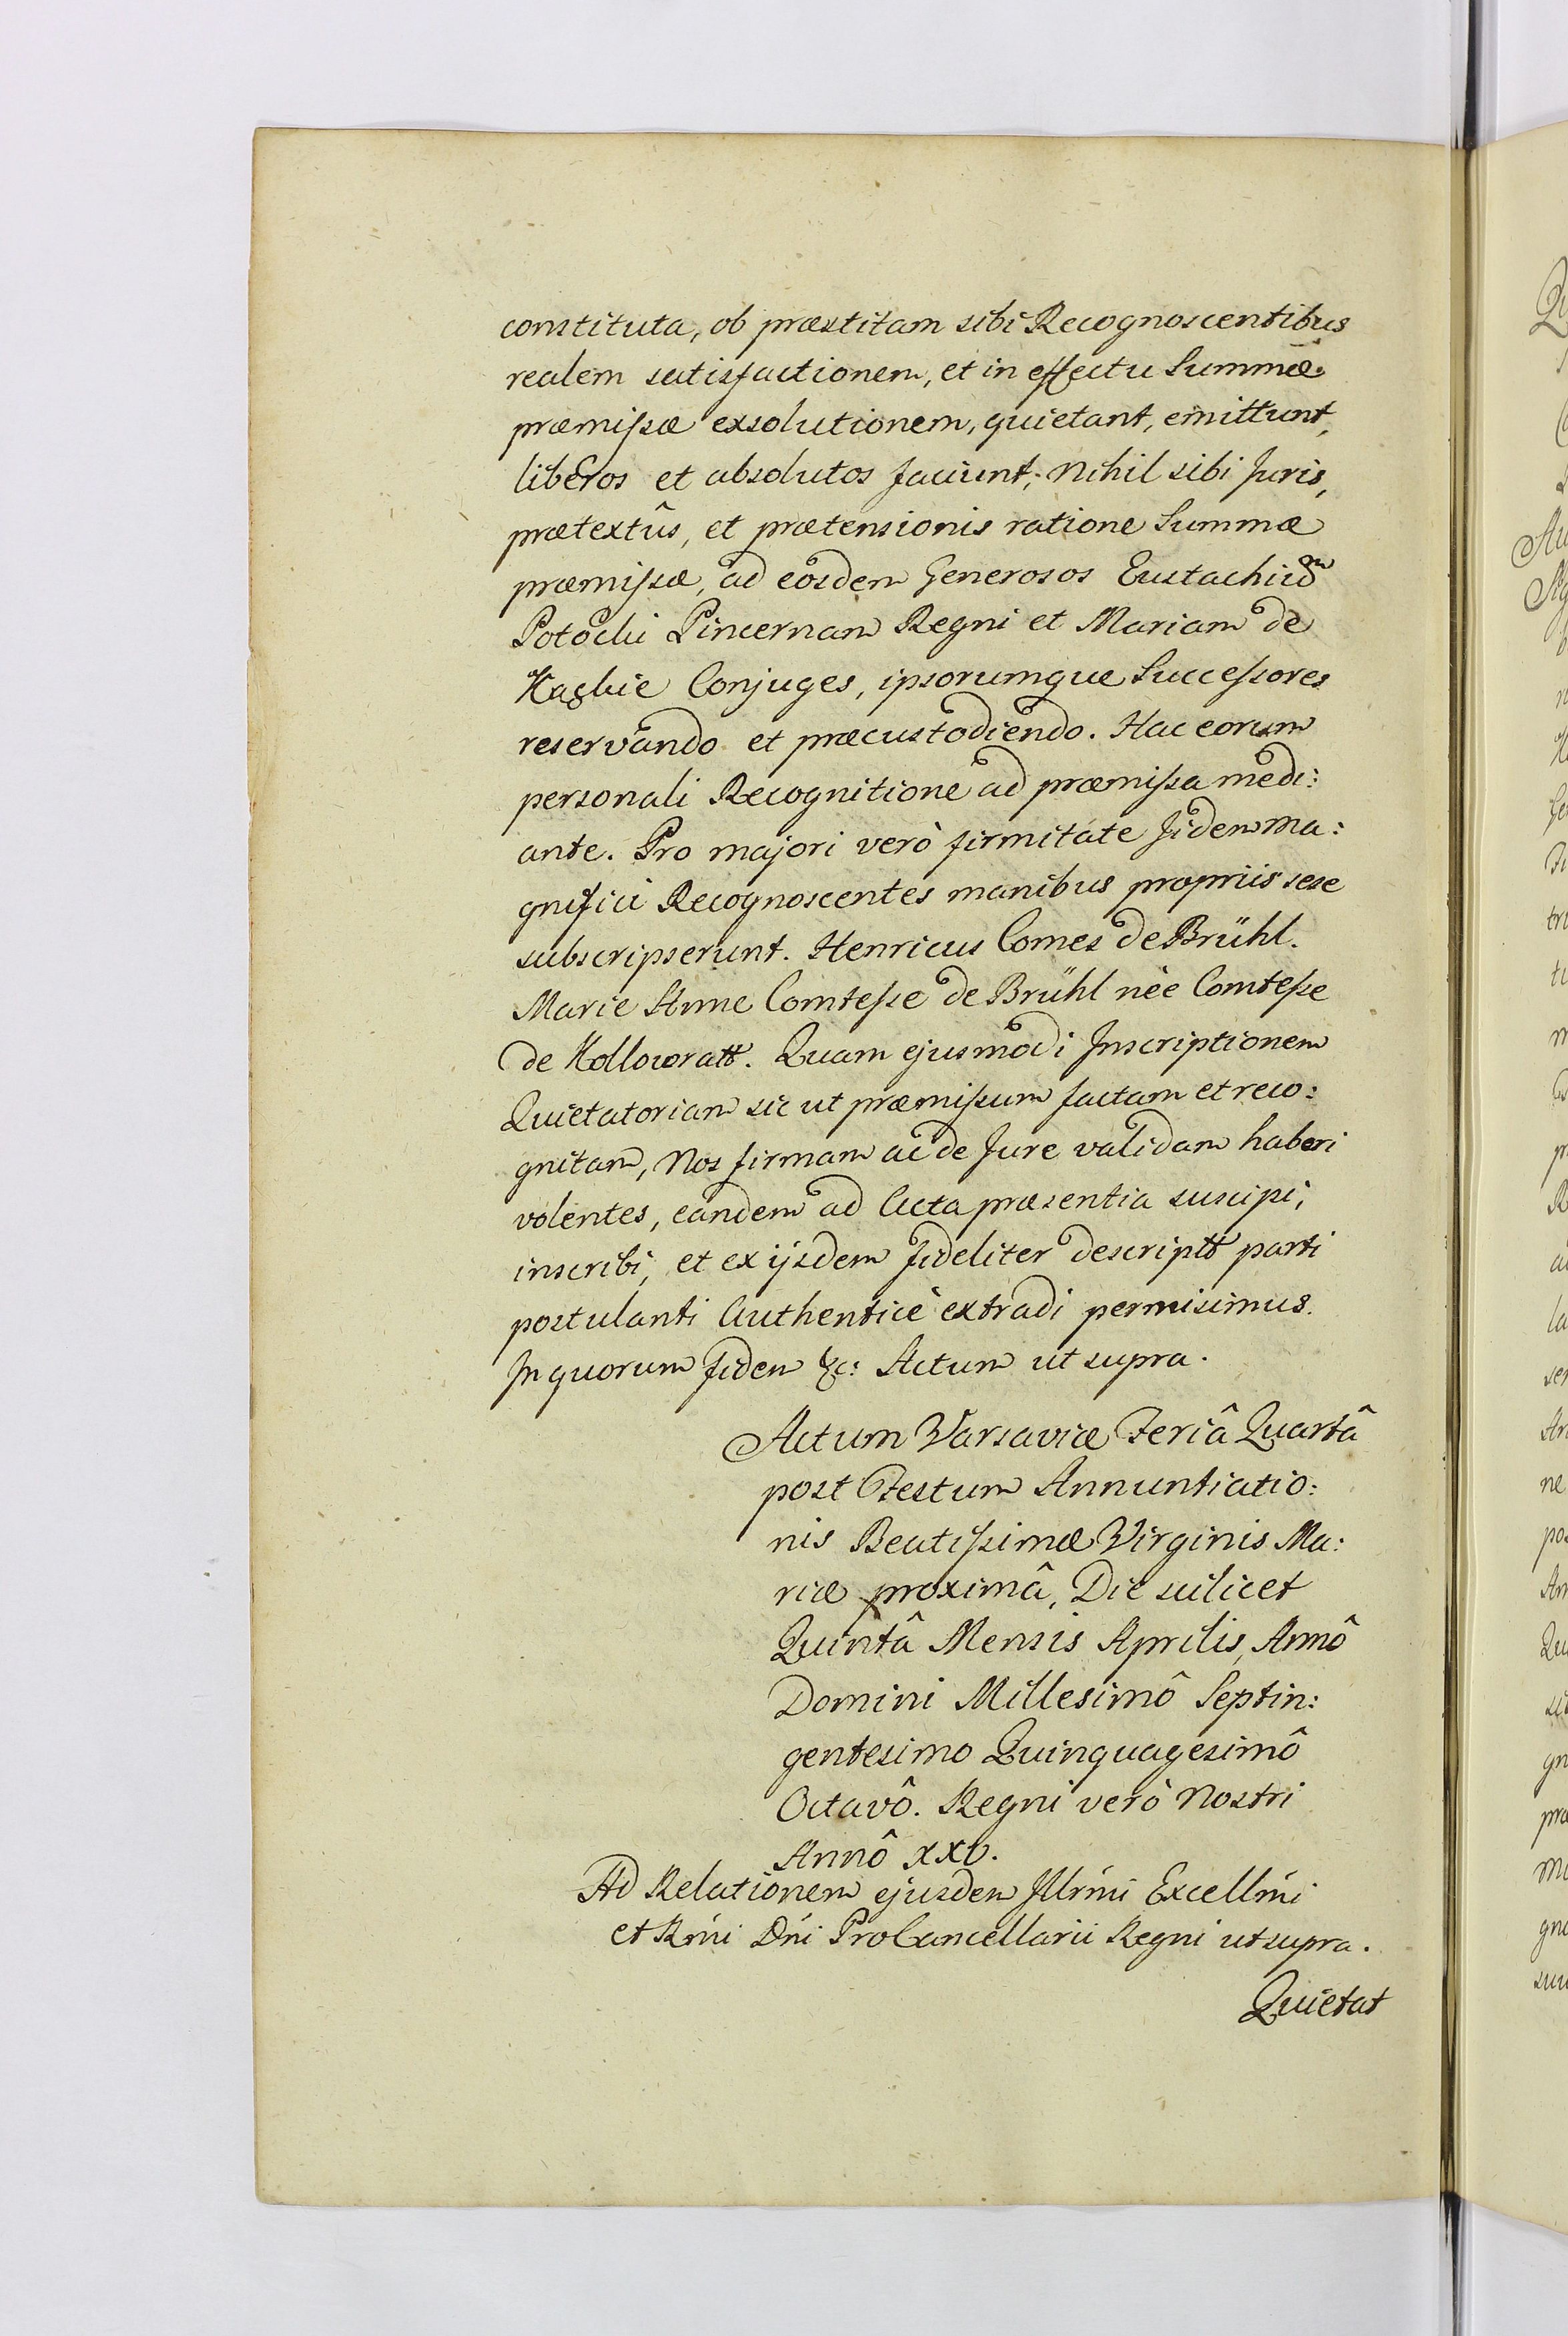 constituta, ob præstitam sibi Recognoscentibus
realem satisfactionem, et in effectu Summæ
præmissæ exsolutionem, quietant, emittunt,
liberos et absolutos faciunt; Nihil sibi Juris,
prætextûs, et prætensionis ratione Summæ
præmissæ, ad eosdem Generosos Eustachium
Potocki Pincernam Regni et Mariam de
Kątskie Conjuges, ipsorumque Successores
reservando et præcustodiendo. Hac eorum
personali Recognitione ad præmissa medi:
ante. Pro majori verò firmitate Jidem Ma:
gnifici Recognoscentes manibus propriis sese
subscripserunt. Henricus Comes de Brühl.
Marie Anne Comtesse de Brühl nèe Comtesse
de Kollowratt. Quam ejusmodi Inscriptionem
Quietatoriam sic ut præmissum factam et reco:
gnitam, Nos firmam ac de Jure validam haberi
volentes, eandem ad Acta præsentia suscipi,
inscribi, et ex ijsdem fideliter descriptt parti
postulanti Authenticè extradi permisimus.
In quorum fidem &c: Actum ut supra.
Actum Varsaviæ Feriâ Quartâ
post Festum Annuntiatio:
nis Beatissimæ Virginis Ma:
riæ proximâ, Die scilicet
Quintâ Mensis Aprilis, Annô
Domini Millesimô Septin:
gentesimo Quinquagesimô
Octavô. Regni verò Nostri
Annô XXV.
Ad Relationem ejusdem Illrmi Excellmi
et Rmi Dni ProCancellarii Regni ut supra.
Quietat